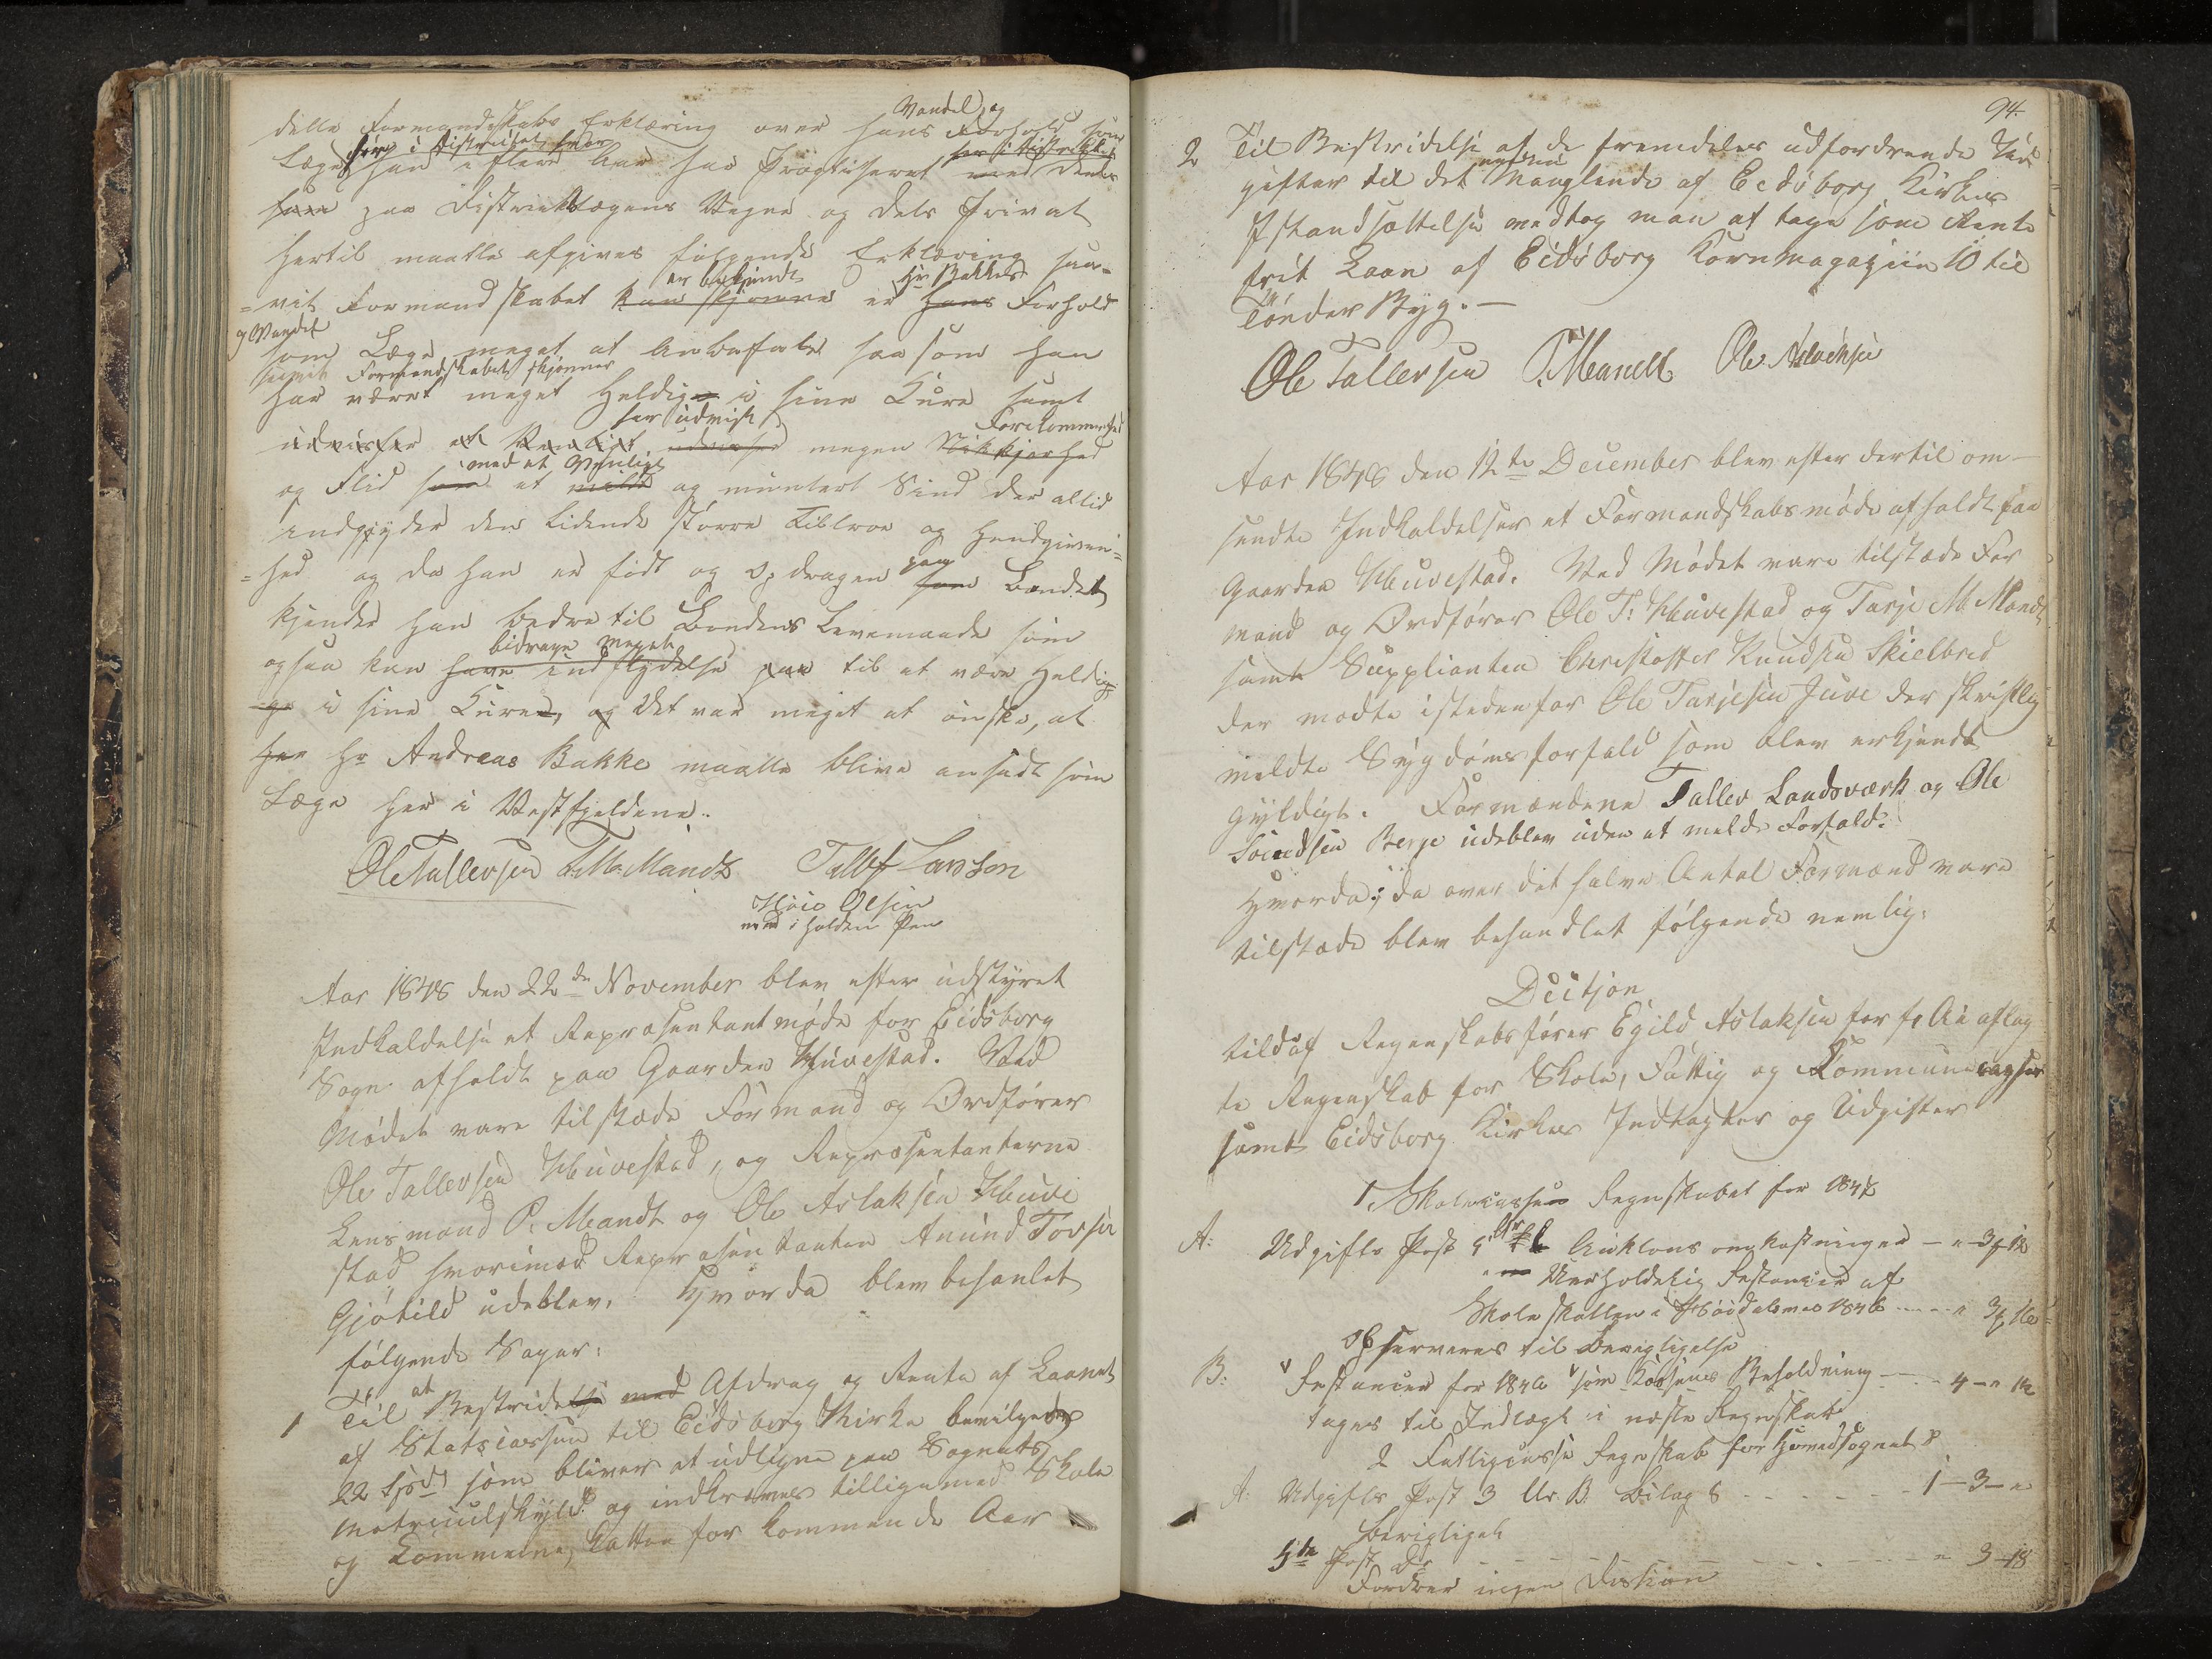 dette Formandskabs Erklæring over hans Forhold som
Vandel og
Læge her i Distriktet, hvor han i flere Aar har Practiseret
paa Districtslægens Vegne og dels Privat
hertil maatte afgives følgende Erklæring saa-
=vit Formandskabet er bekjendt er Hr Bakkes Forhold
og Vandel
som Læge meget at Anbefale saasom han
saavit Formandskabet skjønner
har været meget Heldig i sine Kure samt
har udvist megen Forekommenhed
og Flid med et Venligt og muntert Sind der altid
indgyder den Lidende større Tiltroe og Hendgiven-
=hed og da han er født og opdragen paa Landet
kjender han bedre til Bondens Levemaade som
ogsaa kan bidrage meget til at være Heldig
i sine Kure, det var meget at ønske, at
Hr Andreas Bakke maatte blive ansadt som
Læge her i Vestfjeldene.
Ole Tallevsen T. M. Mandt Tallef Larsson
Høie Olsen
med iholden Pen
Aar 1848 den 22de November blev efter udstyret
Indkaldelse et Repræsentantmøde for Eidsborg
Sogn afholdt paa Gaarden Huvestad. Ved
Mødet vare tilstæde Formand og Ordfører
Ole Tallevsen Huvestad, og Repræsentanterne
Lensmand P. Mandt og Ole Aslaksen Huve
stad hvorimod Repræsentanten Anund Tovsen
Gjøtild udeblev. Hvorda blev behanlet
følgende Sager:
1 Til at Bestride Afdrag og Rente af Laanet
af Statscassen til Eidsborg Kirke bevilgedes
22 som bliver at udligne paa Sognets
Matriculskyld og indkræves tilligemed Skole
og Commune, Skatten for kommende Aar
94.
2 Til Bestridelse af de fremdeles udfordrende Ud
gifter til det Manglende af Eidsborg Kirkes
Istandsættelse vedtog man at tage som Rente
frit Laan af Eidsborg Kornmagaziin 10 tie
Tønder Byg.—
Ole Tallevsen P. Mandt Ole Aslaksen
Aar 1848 den 12te December blev efter dertil om-
sendte Indkaldelser et Formandskabsmøde afholdt paa
Gaarden Huvestad. Ved Mødet vare tilstæde For
mand og Ordfører Ole T: Huvestad og Tarje M. Mandt
samt Supplianten Christoffer Knudsen Skielbred
der mødte istedenfor Ole Tarjesen Juve der skriftlig
meldte Sygdomsforfald som blev erkjendt
gyldigt. Formændene Tallev Landsværk og Ole
Berge udeblev uden at melde Forfald.
Hvorda, da over det halve Antal Formænd vare
tilstæde blev behandlet følgende nemlig:
Deitjon
til Regenskabsfører Egild Aslaksen for aflag
te Regenskab for Skole, Fattig og Kommunecasser
samt Eidsborg Kirkes Indtægter og Udgifter
1 Skolecassens Regnskabet for 1847
A: Udgifts Post 5 Auktions omkostninger — " 3 12
Uerholdelig Restancer af
Skoleskatten i 1846 " 3 16
Observeres til Bevigligelse
B: Restancer for 1846 som Beholdning 4 — " 12
tages til Indtægt i næste Regnskab
2 Fattigcasse Regnskab for Hovedsognet
A: Udgifts Post 3 Ur. B. Bilag 8 1 — 3 — "
Bevigliget
5te Post do " 3 18
Fordrer ingen